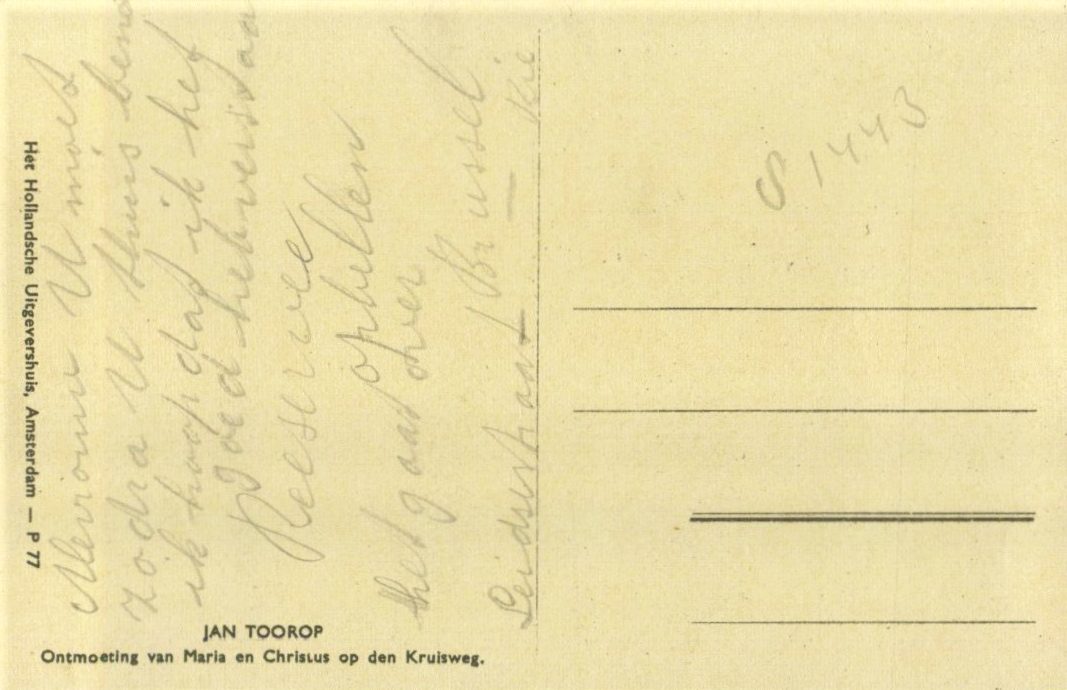 Mevrouw U moet
zodra U thuis bend
ik hoop dat ik het
goed heb verstaa
Reeserwee
ophellen
het gaat over
Brussel
Leidsestraat
S 1443
Het Hollandsche Uitgevershuis, Amsterdam — P 77
JAN TOOROP
Ontmoeting van Maria en Christus op den Kruisweg.